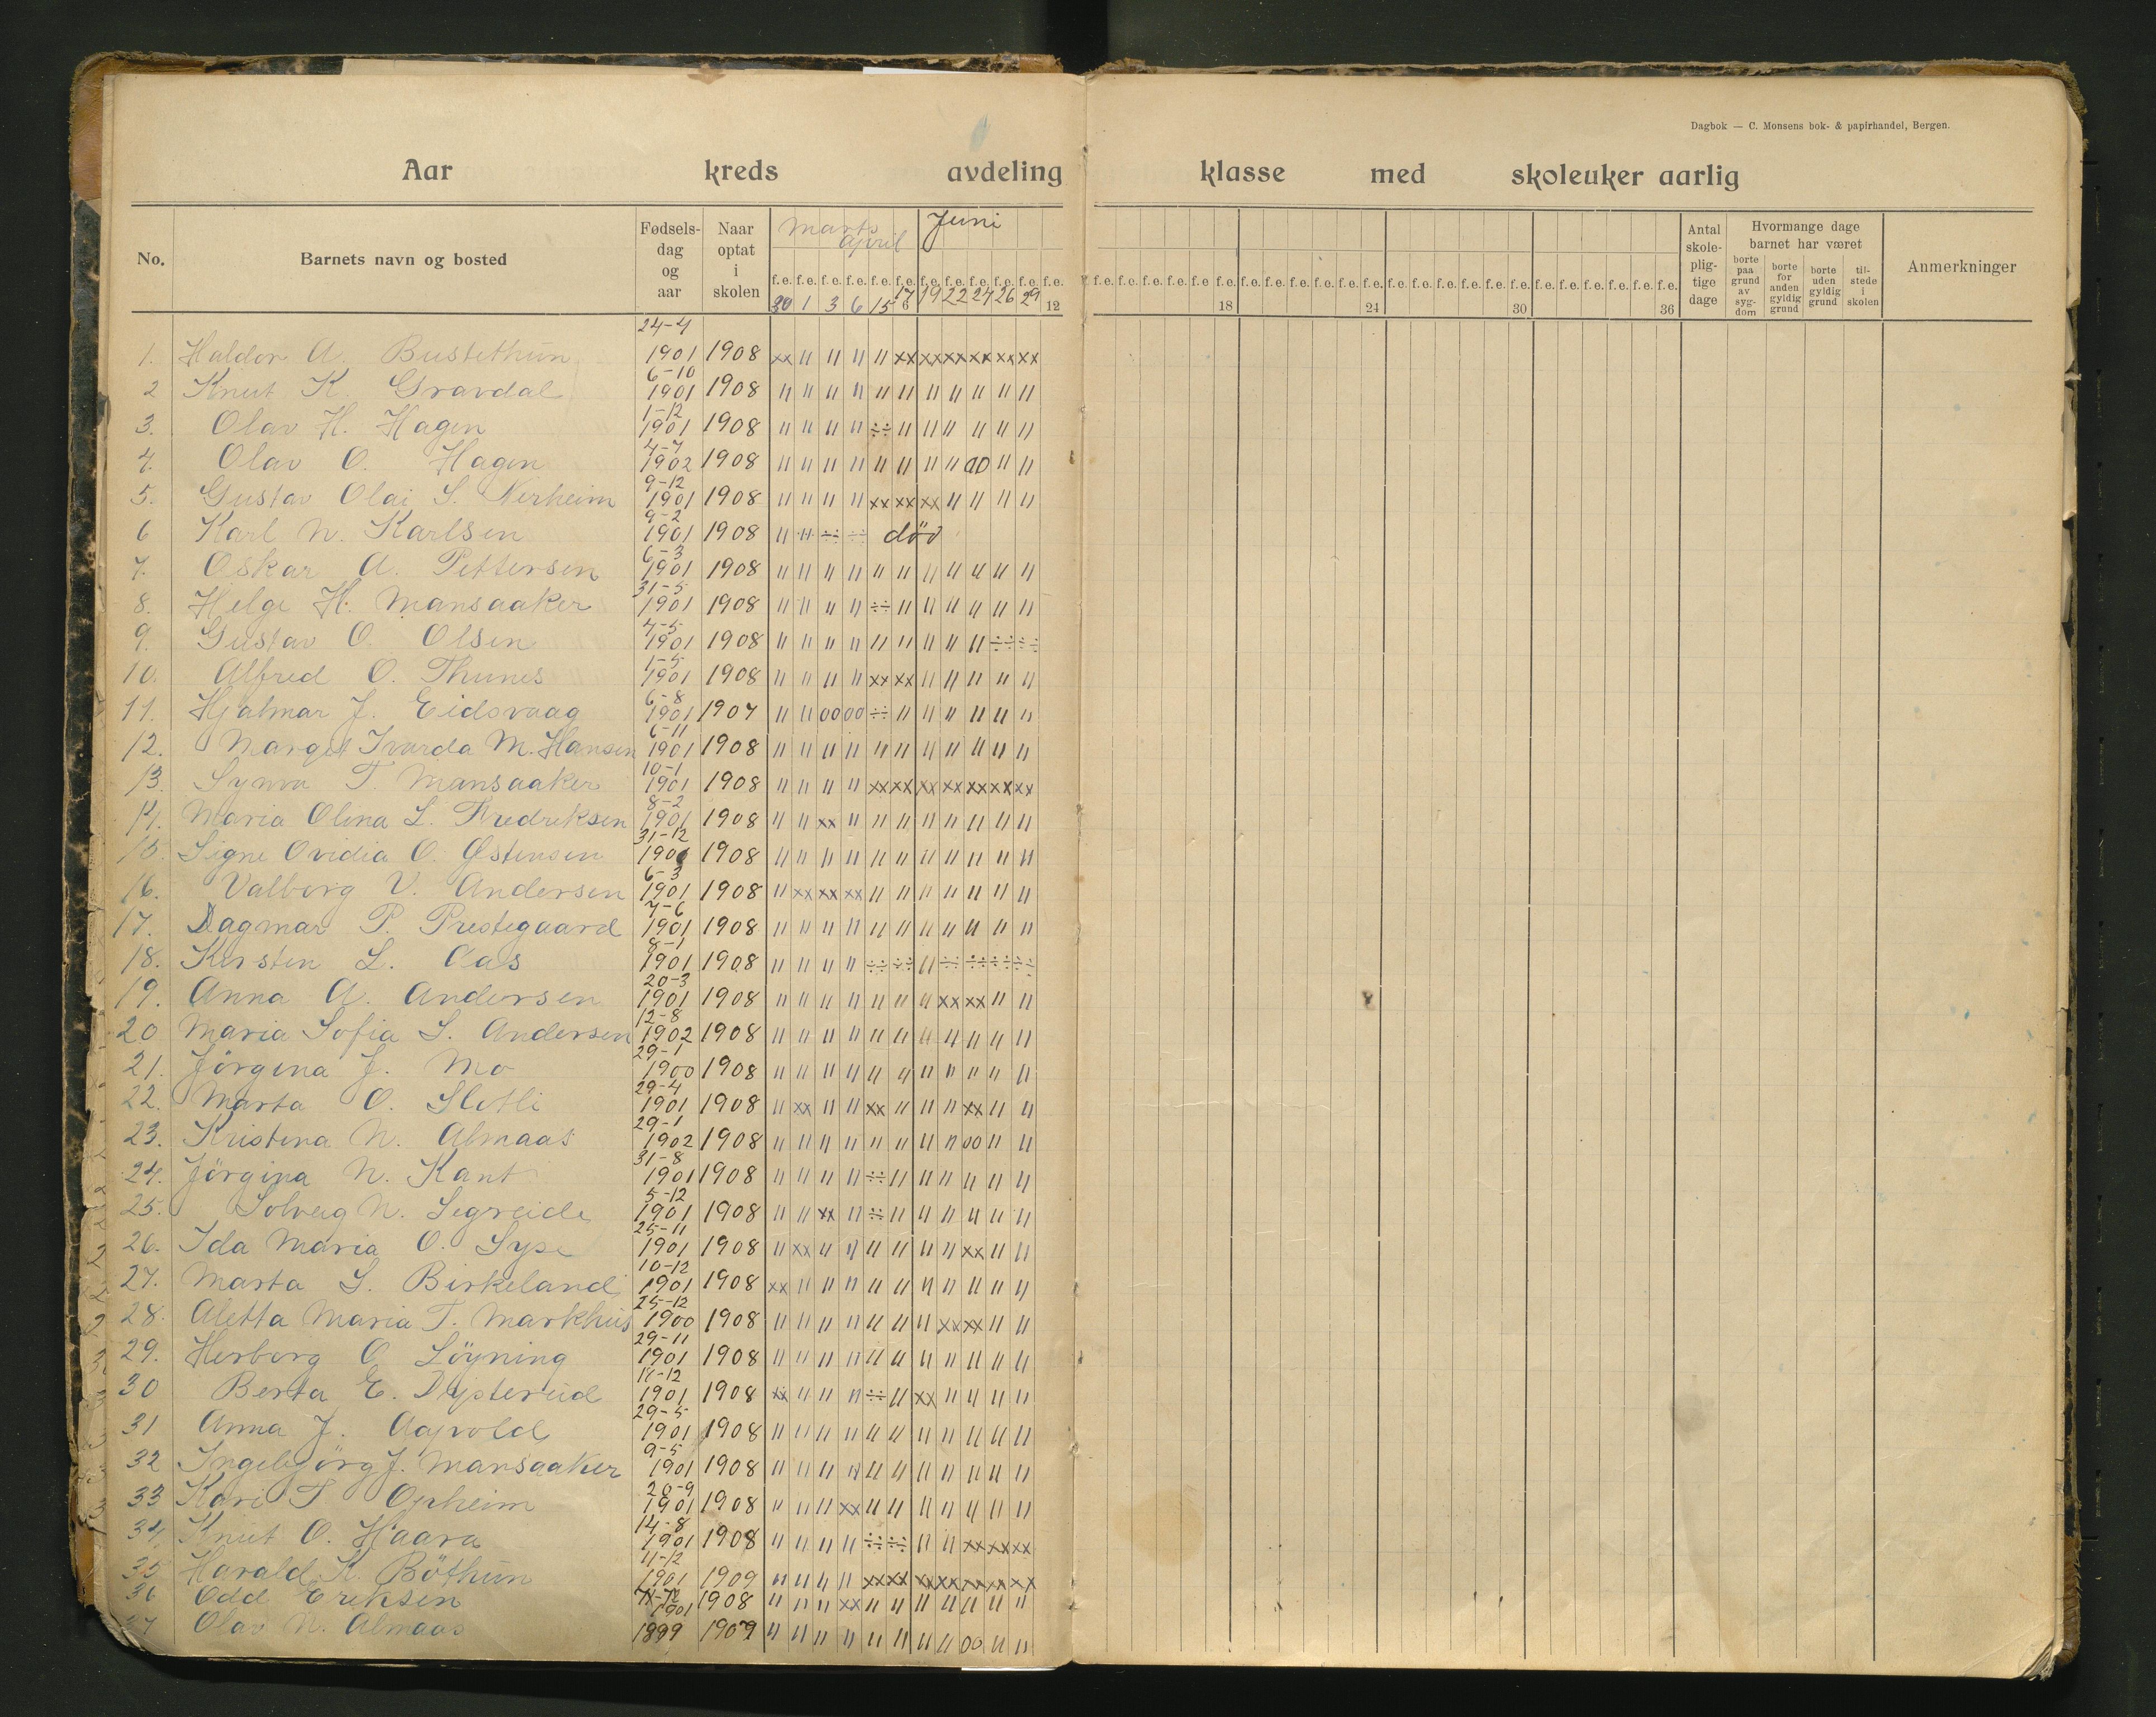 Dagbok — C. Monsens bok- & papirhandel, Bergen.
Aar kreds avdeling klasse med skoleuker aarlig
No. Barnets navn og bosted Fødsels-dag og aar Naar optat i skolen Marts April Juni
Antal skole-plig-tige dage Hvormange dage barnet har været Anmerkninger
borte paa grund av syg-dom borte for anden gyldig grund borte uden gyldig grund til-stede i skolen
f.e. f.e. f.e. f.e. f.e. f.e. f.e. f.e. f.e. f.e. f.e. f.e.
30 1 3 6 15 17 19 22 24 26 29
6 12 18 24 30 36
24-4
1. Haldor A. Bustethun 1901 1908 xx 11 11 11 11 xx xx xx xx xx xx
6-10
2 Knut K. Gravdal 1901 1908 11 11 11 11 11 11 11 11 11 11 11
1-12
3. Olav H. Hagen 1901 1908 11 11 11 11 ÷÷ 11 11 11 11 11 11
4-7
4. Olav O. Hagen 1902 1908 11 11 11 11 11 11 11 11 00 11 11
9-12
5. Gustav Olai S. Nerheim 1901 1908 11 11 11 11 xx xx xx 11 11 11 11
9-2
6 Karl N. Karlsen 1901 1908 11 11 ÷÷ ÷÷ död
6-3
7. Oskar A. Pettersen 1901 1908 11 11 11 11 11 11 11 11 11 11 11
31-5
8. Helge H. Mansaaker 1901 1908 11 11 11 11 ÷÷ 11 11 11 11 11 11
4-5
9. Gustav O. Olsen 1901 1908 11 11 11 11 11 11 11 11 11 ÷÷ ÷÷
1-5
10. Alfred O. Thunes 1901 1908 11 11 11 11 xx xx 11 11 11 11 11
6-8
11. Hjalmar J. Eidsvaag 1901 1907 11 11 00 00 ÷÷ 11 11 11 11 11 11
6-11
12. Margit Ivarda M. Hansen 1901 1908 11 11 11 11 11 11 11 11 11 11 11
10-1
13. Synva T. Mansaaker 1901 1908 11 11 11 11 xx xx xx xx xx xx xx
8-2
14. Maria Olina L. Fredriksen 1901 1908 11 11 xx 11 11 11 11 11 11 11 11
31-12
15. Signe Ovidia O. Østensen 1900 1908 11 11 11 11 11 11 11 11 11 11 11
6-3
16. Valborg V. Andersen 1901 1908 11 xx xx xx 11 11 11 11 11 11 11
7-6
17. Dagmar P. Prestegaard 1901 1908 11 11 11 11 11 11 11 11 11 11 11
8-1
18. Kirsten L. Aas 1901 1908 11 11 11 11 ÷÷ ÷÷ 11 ÷÷ ÷÷ ÷÷ ÷÷
20-3
19. Anna A. Andersen 1901 1908 11 11 11 11 11 11 11 xx xx 11 11
12-8
20 Maria Sofia S. Andersen 1902 1908 11 11 11 11 11 11 11 11 11 11 11
29-1
21. Jörgina J. Mo 1900 1908 11 11 11 11 11 11 11 11 11 11 11
29-4
22. Marta O. Sletli 1901 1908 11 xx 11 11 xx 11 11 11 xx 11 11
29-1
23. Kristina N. Almaas 1902 1908 11 11 11 11 11 11 11 11 00 11 11
31-8
24. Jörgina N. Kant 1901 1908 11 11 11 11 ÷÷ 11 11 11 11 11 11
5-12
25. Solveig N. Segreide 1901 1908 11 11 xx 11 ÷÷ 11 11 11 11 11 11
25-11
26. Ida Maria O. Syse 1901 1908 11 xx 11 11 11 11 11 11 xx 11 11
10-12
27. Marta S. Birkeland 1901 1908 xx 11 11 11 11 11 11 11 11 11 11
25-12
28. Aletta Maria T. Markhus 1900 1908 11 11 11 11 11 11 11 xx xx 11 11
29-11
29. Herborg O. Löyning 1901 1908 11 11 11 11 11 11 11 11 11 11 11
30 Berta E. 1901 1908 xx 11 11 11 ÷÷ 11 xx 11 11 11 11
29-5
31 Anna J. 1901 1908 11 11 11 11 11 11 11 11 11 11 11
9-5
32 Ingebjörg J. Mansaaker 1901 1908 11 11 11 11 11 11 11 11 11 11 11
20-9
33 Kari T. Opheim 1901 1908 11 11 11 xx 11 11 11 11 11 11 11
14-8
34 Knut O. Haara 1901 1908 11 11 11 11 ÷÷ ÷÷ 11 11 xx xx xx
11-12
35 Harald K. Böthun 1901 1909 11 11 11 11 xx xx xx xx xx xx xx
36 Odd Eriksen 1901 1908 11 11 11 xx 11 11 11 11 11 11 11
37 Olav N. Almaas 1899 1909 11 11 11 11 11 11 11 11 00 11 11